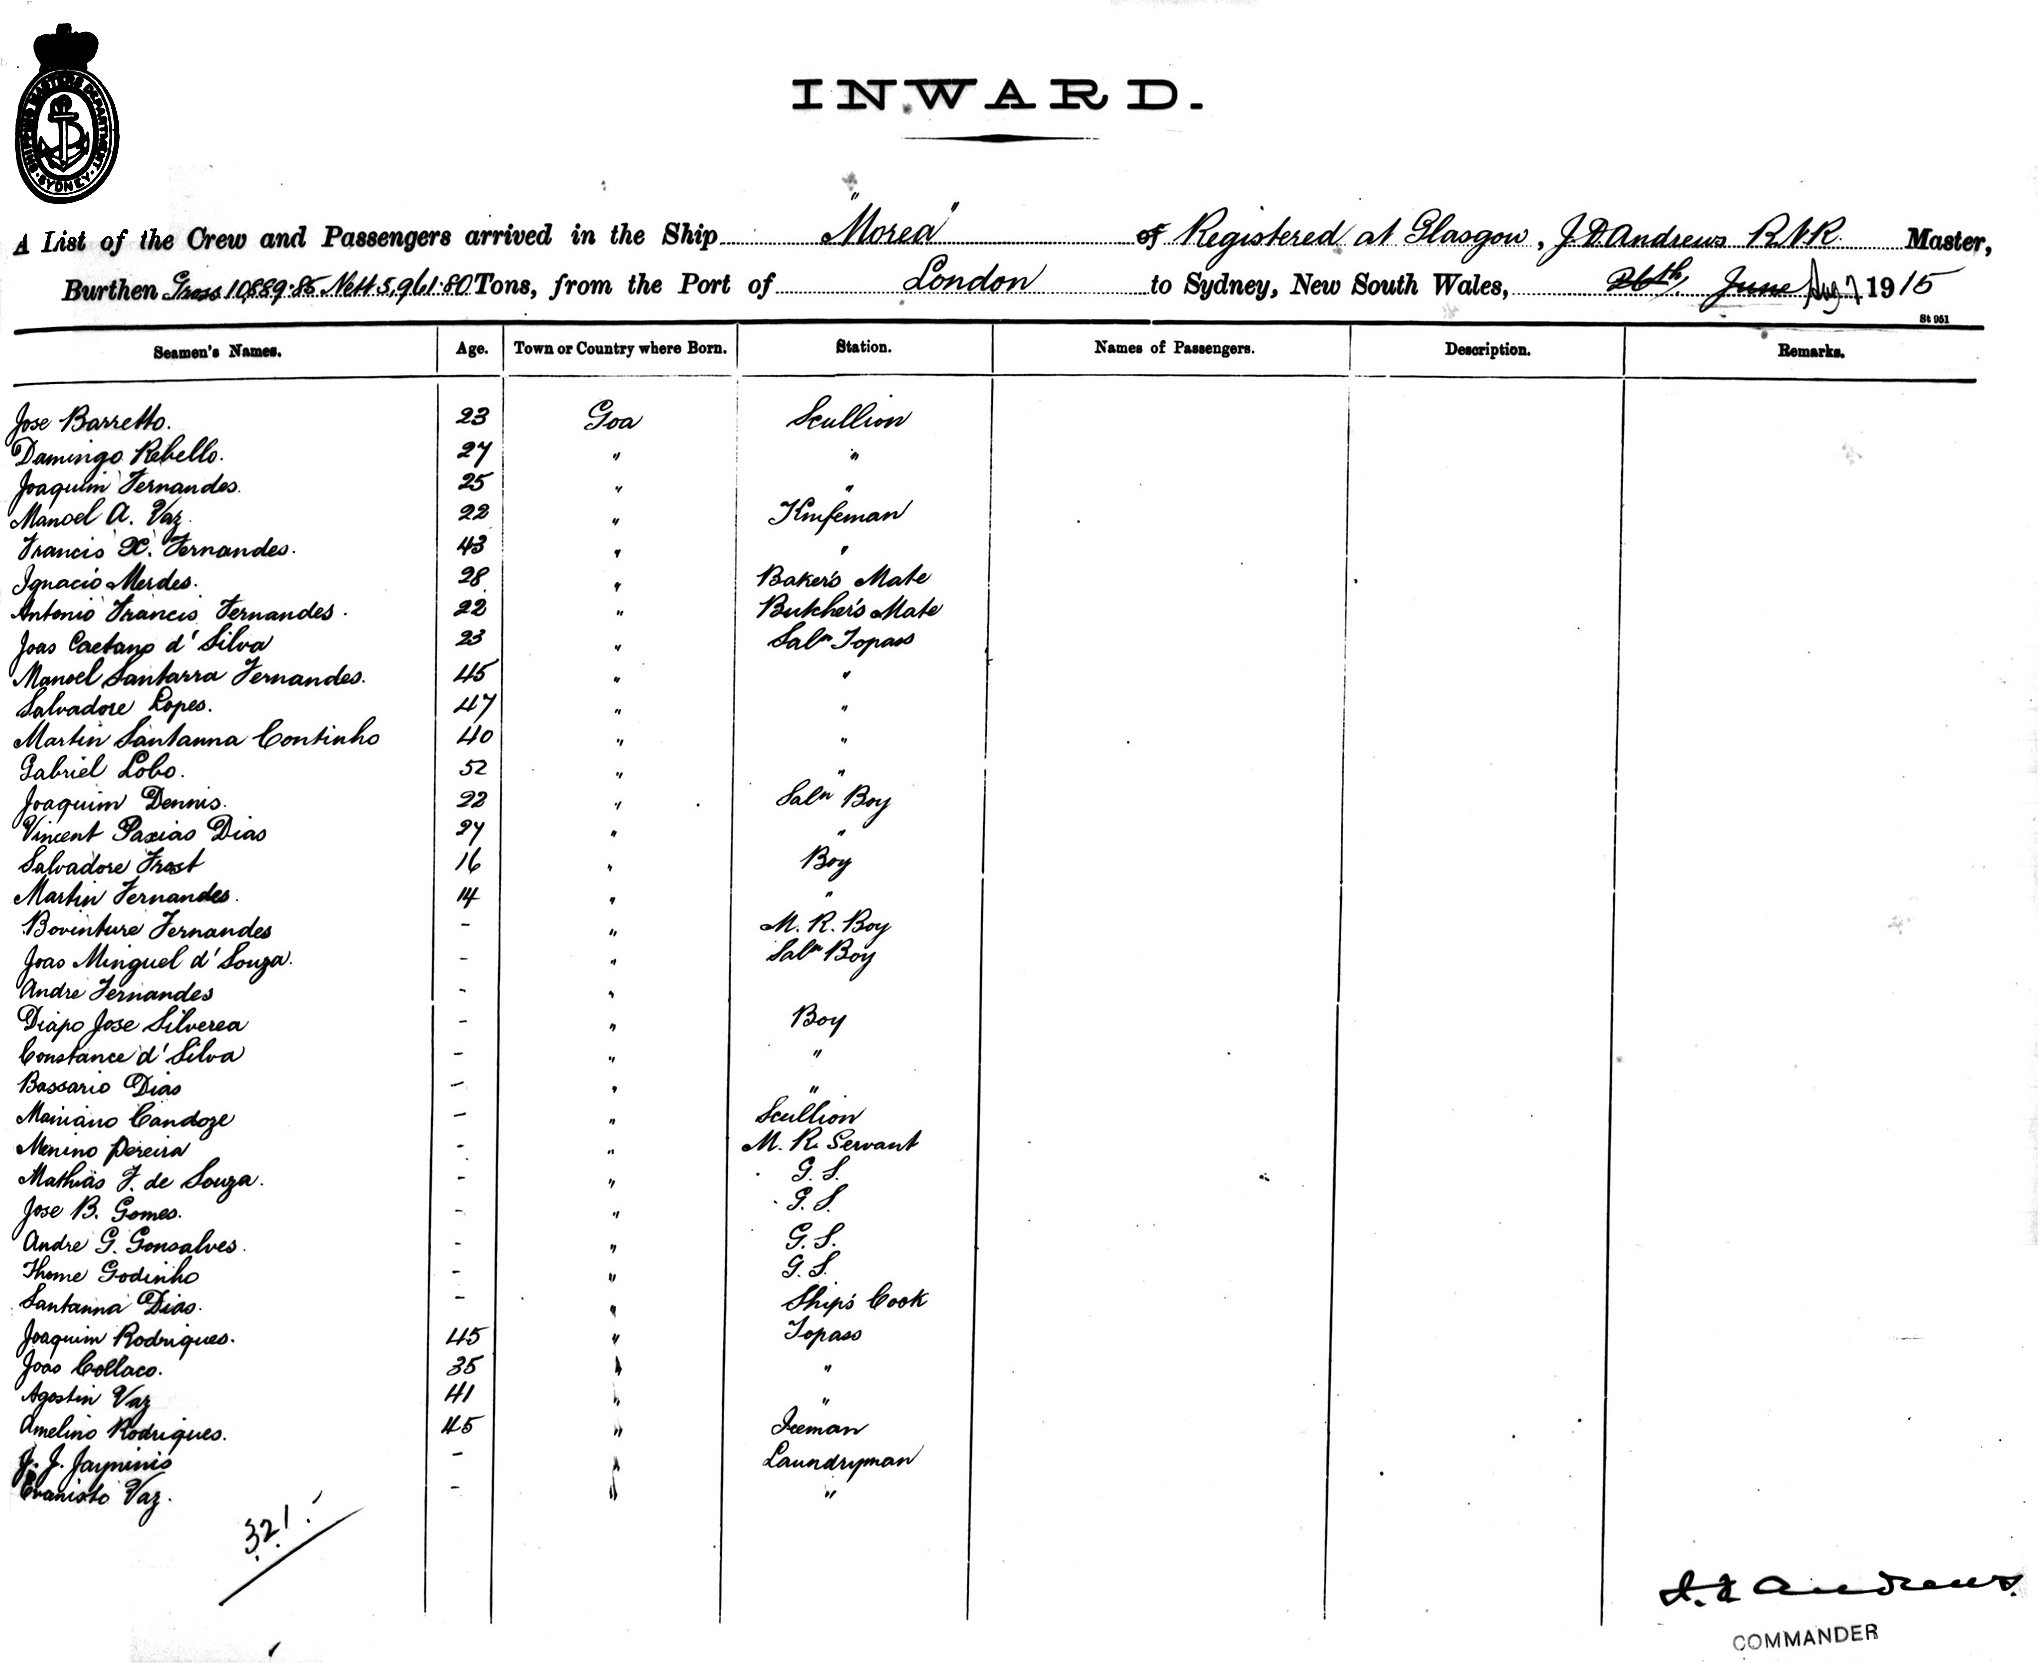 SHIPPING MASTERS DEPARTMENT SYDNEY
INWARD.
A List of the Crew and Passengers arrived in the Ship "Morea" of Registered at Glasgow, J.D. Andrews R.N.R. Master,
Burthen Gross 10,889·85 Nett 5,961·80 Tons, from the Port of London to Sydney, New South Wales, 26th, June Aug 7 1915
St 951
Seamen's Names. Age. Town or Country where Born. Station. Names of Passengers. Description. Remarks.
Jose Barretto. 23 Goa Scullion
Damingo Rebello. 27 " "
Joaquim Fernandes. 25 " "
Manoel A. Vaz. 22 " Knifeman
Francis X. Fernandes. 43 " "
Ignacio Merdes. 28 " Baker's Mate
Antonio Francis Fernandes. 22 " Butcher's Mate
Joas Caetano d' Silva 23 " Saln Topass
Manoel Santarra Fernandes. 45 " "
Salvadore Lopes. 47 " "
Martin Santanna Continho 40 " "
Gabriel Lobo. 52 " "
Joaquim Dennis. 22 " Saln Boy
Vincent Paxias Dias 27 " "
Salvadore Frost 16 " Boy
Martin Fernandes. 14 " "
Boventure Fernandes - " M. R. Boy
Joas Minguel d' Souza. - " Saln Boy
Andre Fernandes - "
Diapo Jose Silverea - " Boy
Constance d' Silva - " "
Bassario Dias - " "
Mariano Candoze - " Scullion
Menino Pereira - " M. R. Servant
Mathias F. de Souza. - " G. S.
Jose B. Gomes. - " G. S.
Andre G. Gonsalves. - " G. S.
Thome Godinho - " G. S.
Santanna Dias. - " Ship's Cook
Joaquim Rodrigues. 45 " Topass
Joas Collaco. 35 " "
Agostin Vaz 41 " "
Amelino Rodrigues. 45 " Iceman
J. J. Jayminis - " Laundryman
Evanisto Vaz. - " "
321.
J. D. Andrews.
COMMANDER